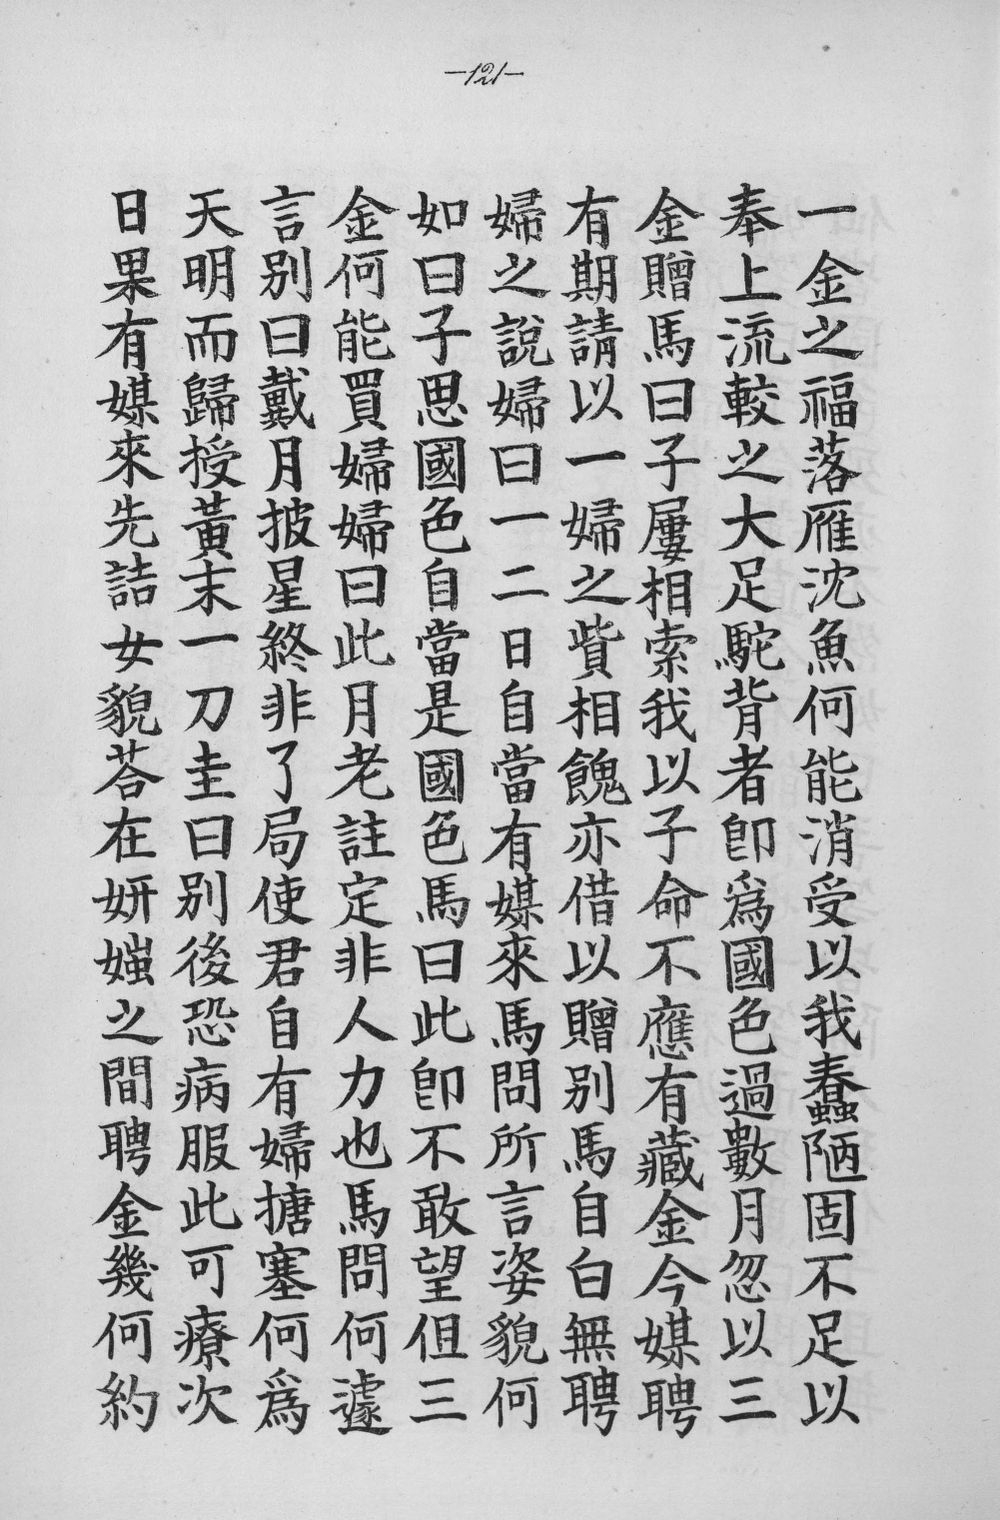 —121—
一金之福落雁沈魚何能消受以我蠢陋固不足以
奉上流較之大足駝背者卽爲國色過數月忽以三
金贈馬曰子屢相索我以子命不應有藏金今媒聘
有期請以一婦之貲相餽亦借以贈别馬自白無聘
婦之說婦曰一二日自當有媒來馬問所言姿貌何
如曰子思國色自當是國色馬曰此卽不敢望但三
金何能買婦婦曰此月老註定非人力也馬問何遽
言别曰戴月披星終非了局使君自有婦搪塞何爲
天明而歸授黃末一刀圭曰别後恐病服此可療次
日果有媒來先詰女貌荅在妍媸之間聘金幾何約